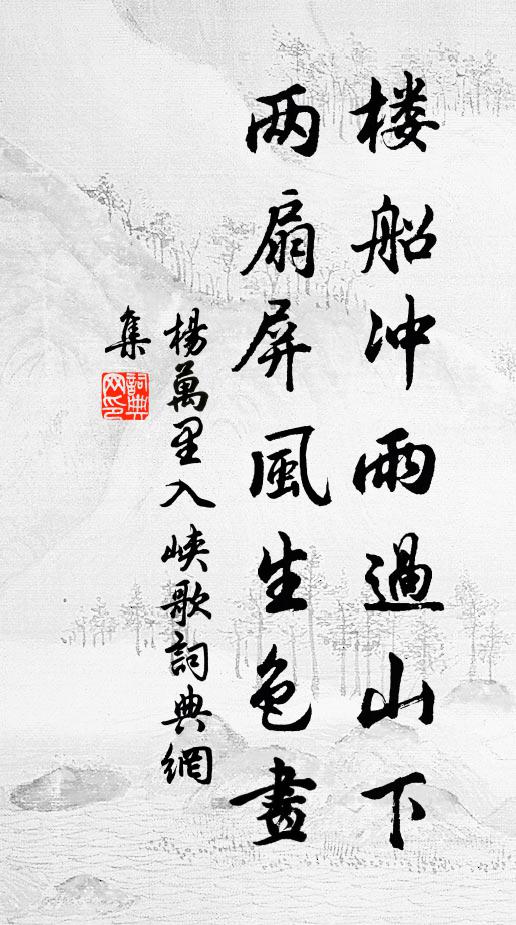 楼船冲雨過山下
两扇屏風生色畫
楊萬里入峡歌詞典網
集
詞典
网印